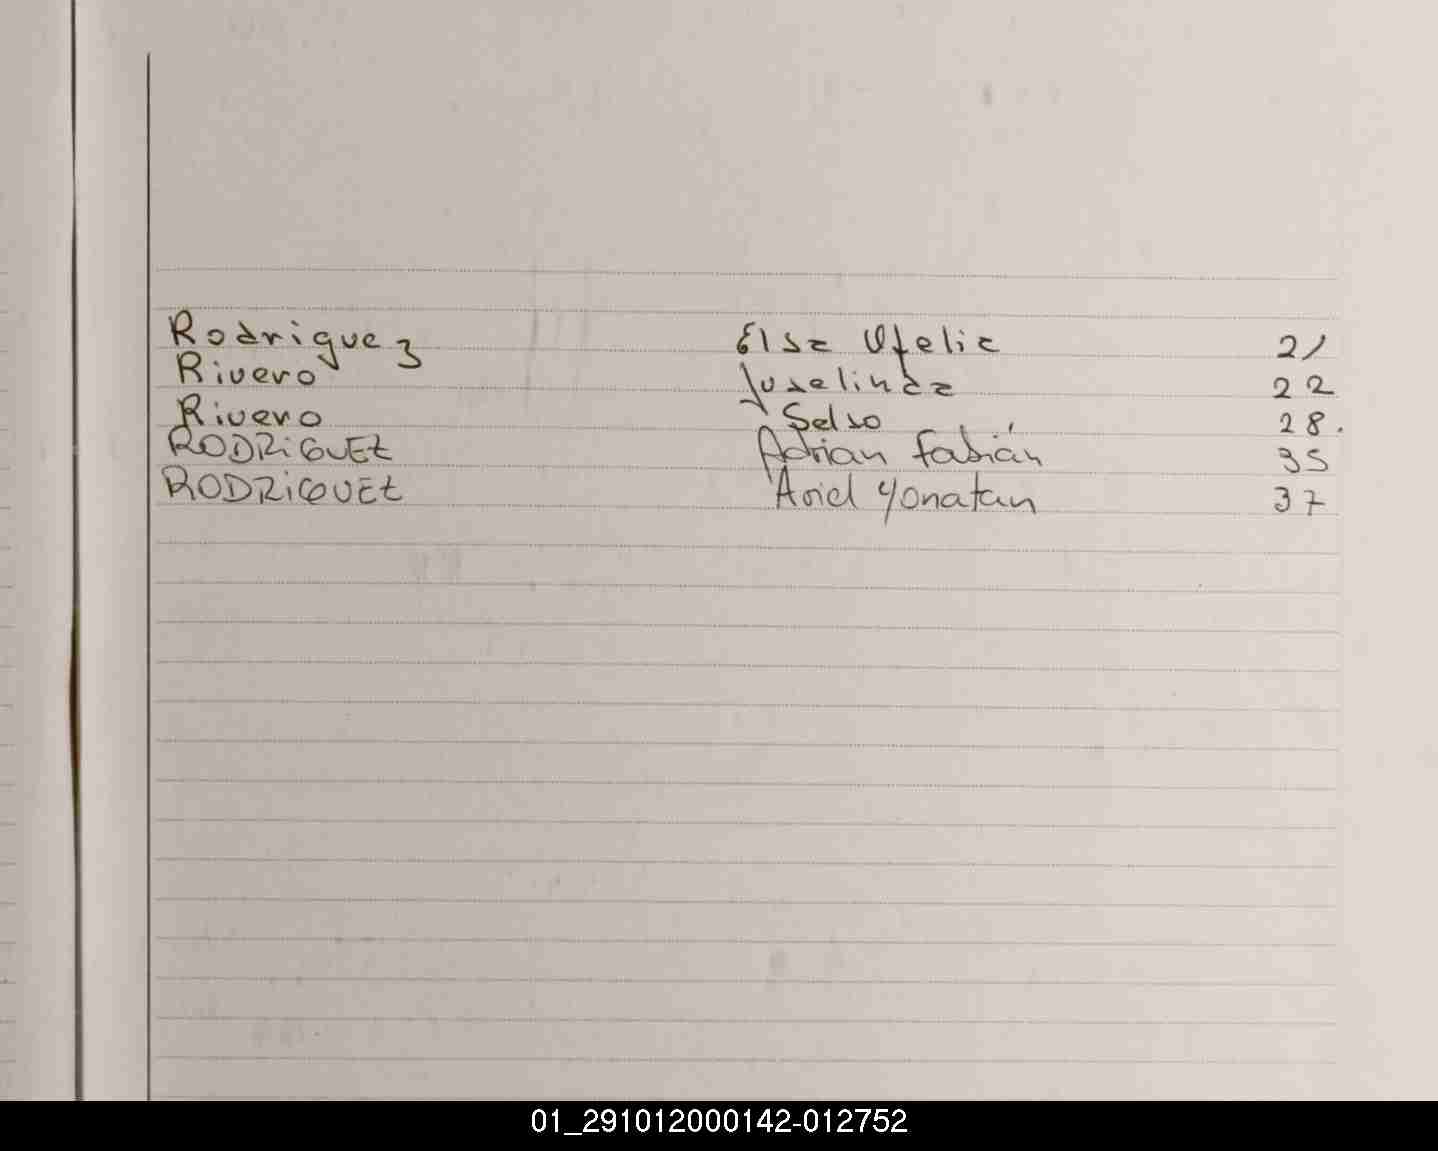 Rodriguez Elsa Ofelia 21
Rivero Juselinda 22
Rivero Selso 28.
RODRiGUEZ Adrian Fabián 35
RODRiGUEZ Ariel Yonatan 37
01_291012000142-012752